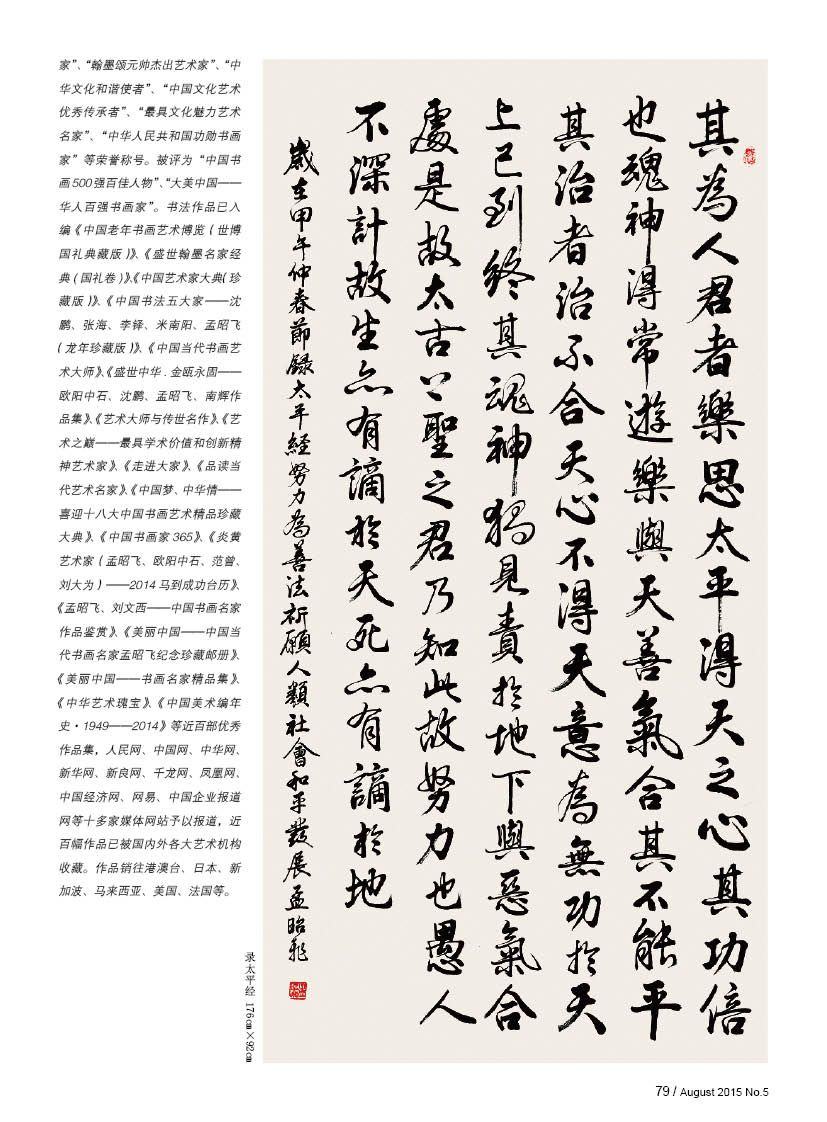 家”、“翰墨颂元帅杰出艺术家”、“中
华文化和谐使者”、“中国文化艺术
优秀传承者”、“最具文化魅力艺术
名家”、“中华人民共和国功勋书画
家”等荣誉称号。被评为“中国书
画500强百佳人物”、“大美中国——
华人百强书画家”。书法作品已入
编《中国老年书画艺术博览(世博
国礼典藏版)》、《盛世翰墨名家经
典(国礼卷)》、《中国艺术家大典(珍
藏版)》、《中国书法五大家——沈
鹏、张海、李铎、米南阳、孟昭飞
(龙年珍藏版)》、《中国当代书画艺
术大师》、《盛世中华.金瓯永固——
欧阳中石、沈鹏、孟昭飞、南辉作
品集》、《艺术大师与传世名作》、《艺
术之巅——最具学术价值和创新精
神艺术家》、《走进大家》、《品读当
代艺术名家》、《中国梦、中华情——
喜迎十八大中国书画艺术精品珍藏
大典》、《中国书画家365》、《炎黄
艺术家(孟昭飞、欧阳中石、范曾、
刘大为)——2014马到成功台历》、
《孟昭飞、刘文西——中国书画名家
作品鉴赏》、《美丽中国——中国当
代书画名家孟昭飞纪念珍藏邮册》、
《美丽中国——书画名家精品集》、
《中华艺术瑰宝》、《中国美术编年
史·1949——2014》等近百部优秀
作品集，人民网、中国网、中华网、
新华网、新良网、千龙网、凤凰网、
中国经济网、网易、中国企业报道
网等十多家媒体网站予以报道，近
百幅作品已被国内外各大艺术机构
收藏。作品销往港澳台、日本、新
加波、马来西亚、美国、法国等。
其為人君者樂思太平得天之心其功倍
也魂神得常遊樂與天善氣合其不能平
其治者治不合天心不得天意為無功於天
上已到終其魂神獨見責於地下與惡氣合
處是故太古上聖之君乃知此故努力也愚人
不深計故生亦有謫於天死亦有謫於地
歲在甲午仲春節錄太平經努力為善法祈願人類社會和平發展孟昭飛
录太平经 176cm×92cm
79 / August 2015 No.5